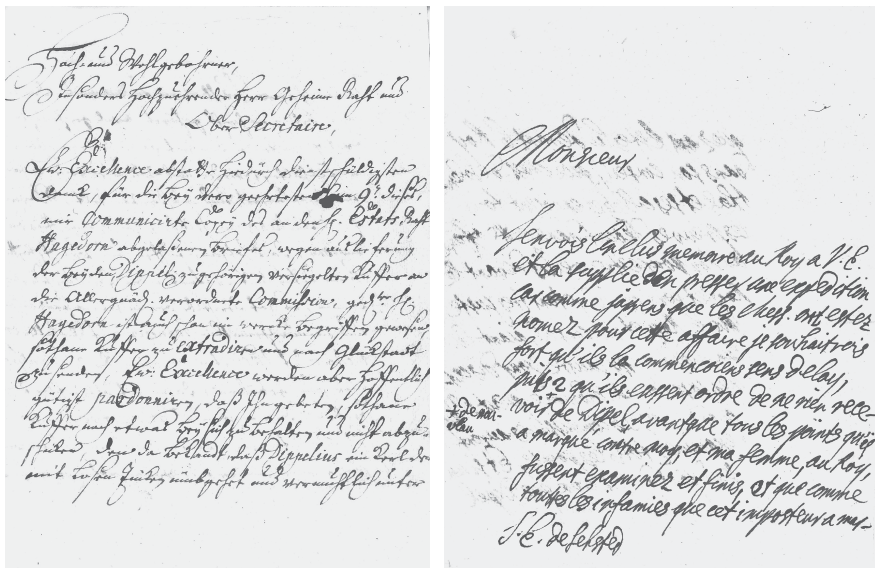 Hoch- und Wohlgebohrner,
Besonders Hochzuehrender Herr Geheime Raht und
Ober Secretaire,
Ew: Excellence abstatte hiedurch dienstschuldigsten
Danck, für die bey dero geehrtesten vom 9. dieses,
mir Communicirte Copey des an den H. Estats-Raht
Hagedorn abgelaßenen Briefes, wegen auslieferung
der beyden Dippel zugehörigen versiegelten Kuffer an
die Allergnäd. verordnete Commission,
Hagedorn ist auch schon im wercke begriffen gewesen,
sothane Kuffer zu extradiren und nach Glückstadt
zu senden, Ew: Excellence werden aber hoffentlich
gütigst pardonniren, daß Ihn gebeten, sothane
Kuffer noch etwas bey sich zu behalten und nicht abzu-
schicken, denn da bekandt, daß Dippelius ein Kerl der
mit losen umbgehet und vermuthlich unter
Monsieur
J'envois l'inclus memoire au Roy a V. E.
et la supplie d'en presser une expedition
car comme j'apprens que les Chess. ont estez
nomez pour cette affaire je souhaitrois
fort qu'ils la commencoient sens delay,
qu'ils eussent ordre de ne rien rece-
voir de Dipel avant que tous les points qu'il
a marqué contre moy et ma femme, au Roy,
fussent examinez et finis, et que comme
touttes les infamies que cet imposteur a
S. E. de Sehsted